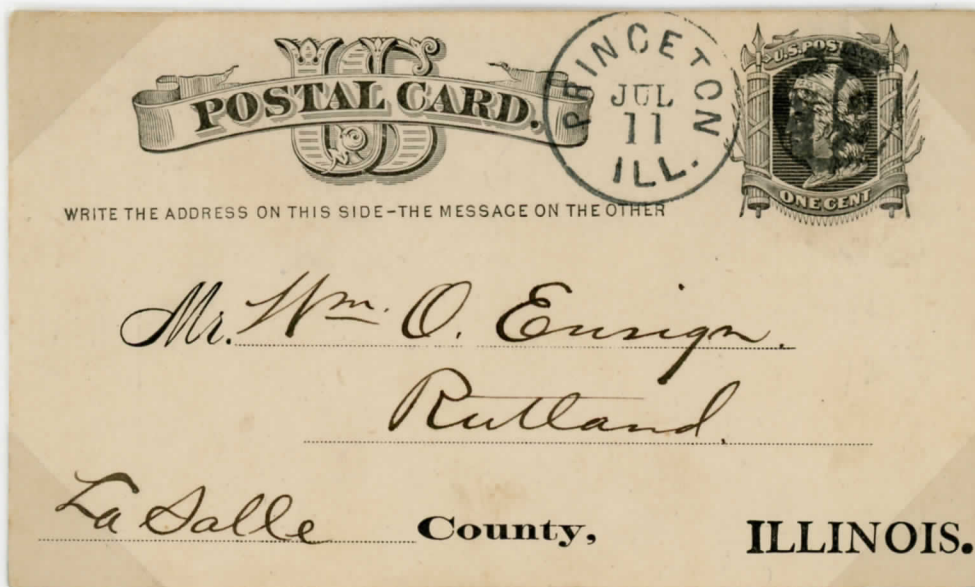 US
POSTAL CARD.
PRINCETON
JUL
11
ILL.
U.S. POSTAGE
ONE CENT
WRITE THE ADDRESS ON THIS SIDE-THE MESSAGE ON THE OTHER
Mr. Wm. O. Ensign.
Rutland.
La Salle County, ILLINOIS.